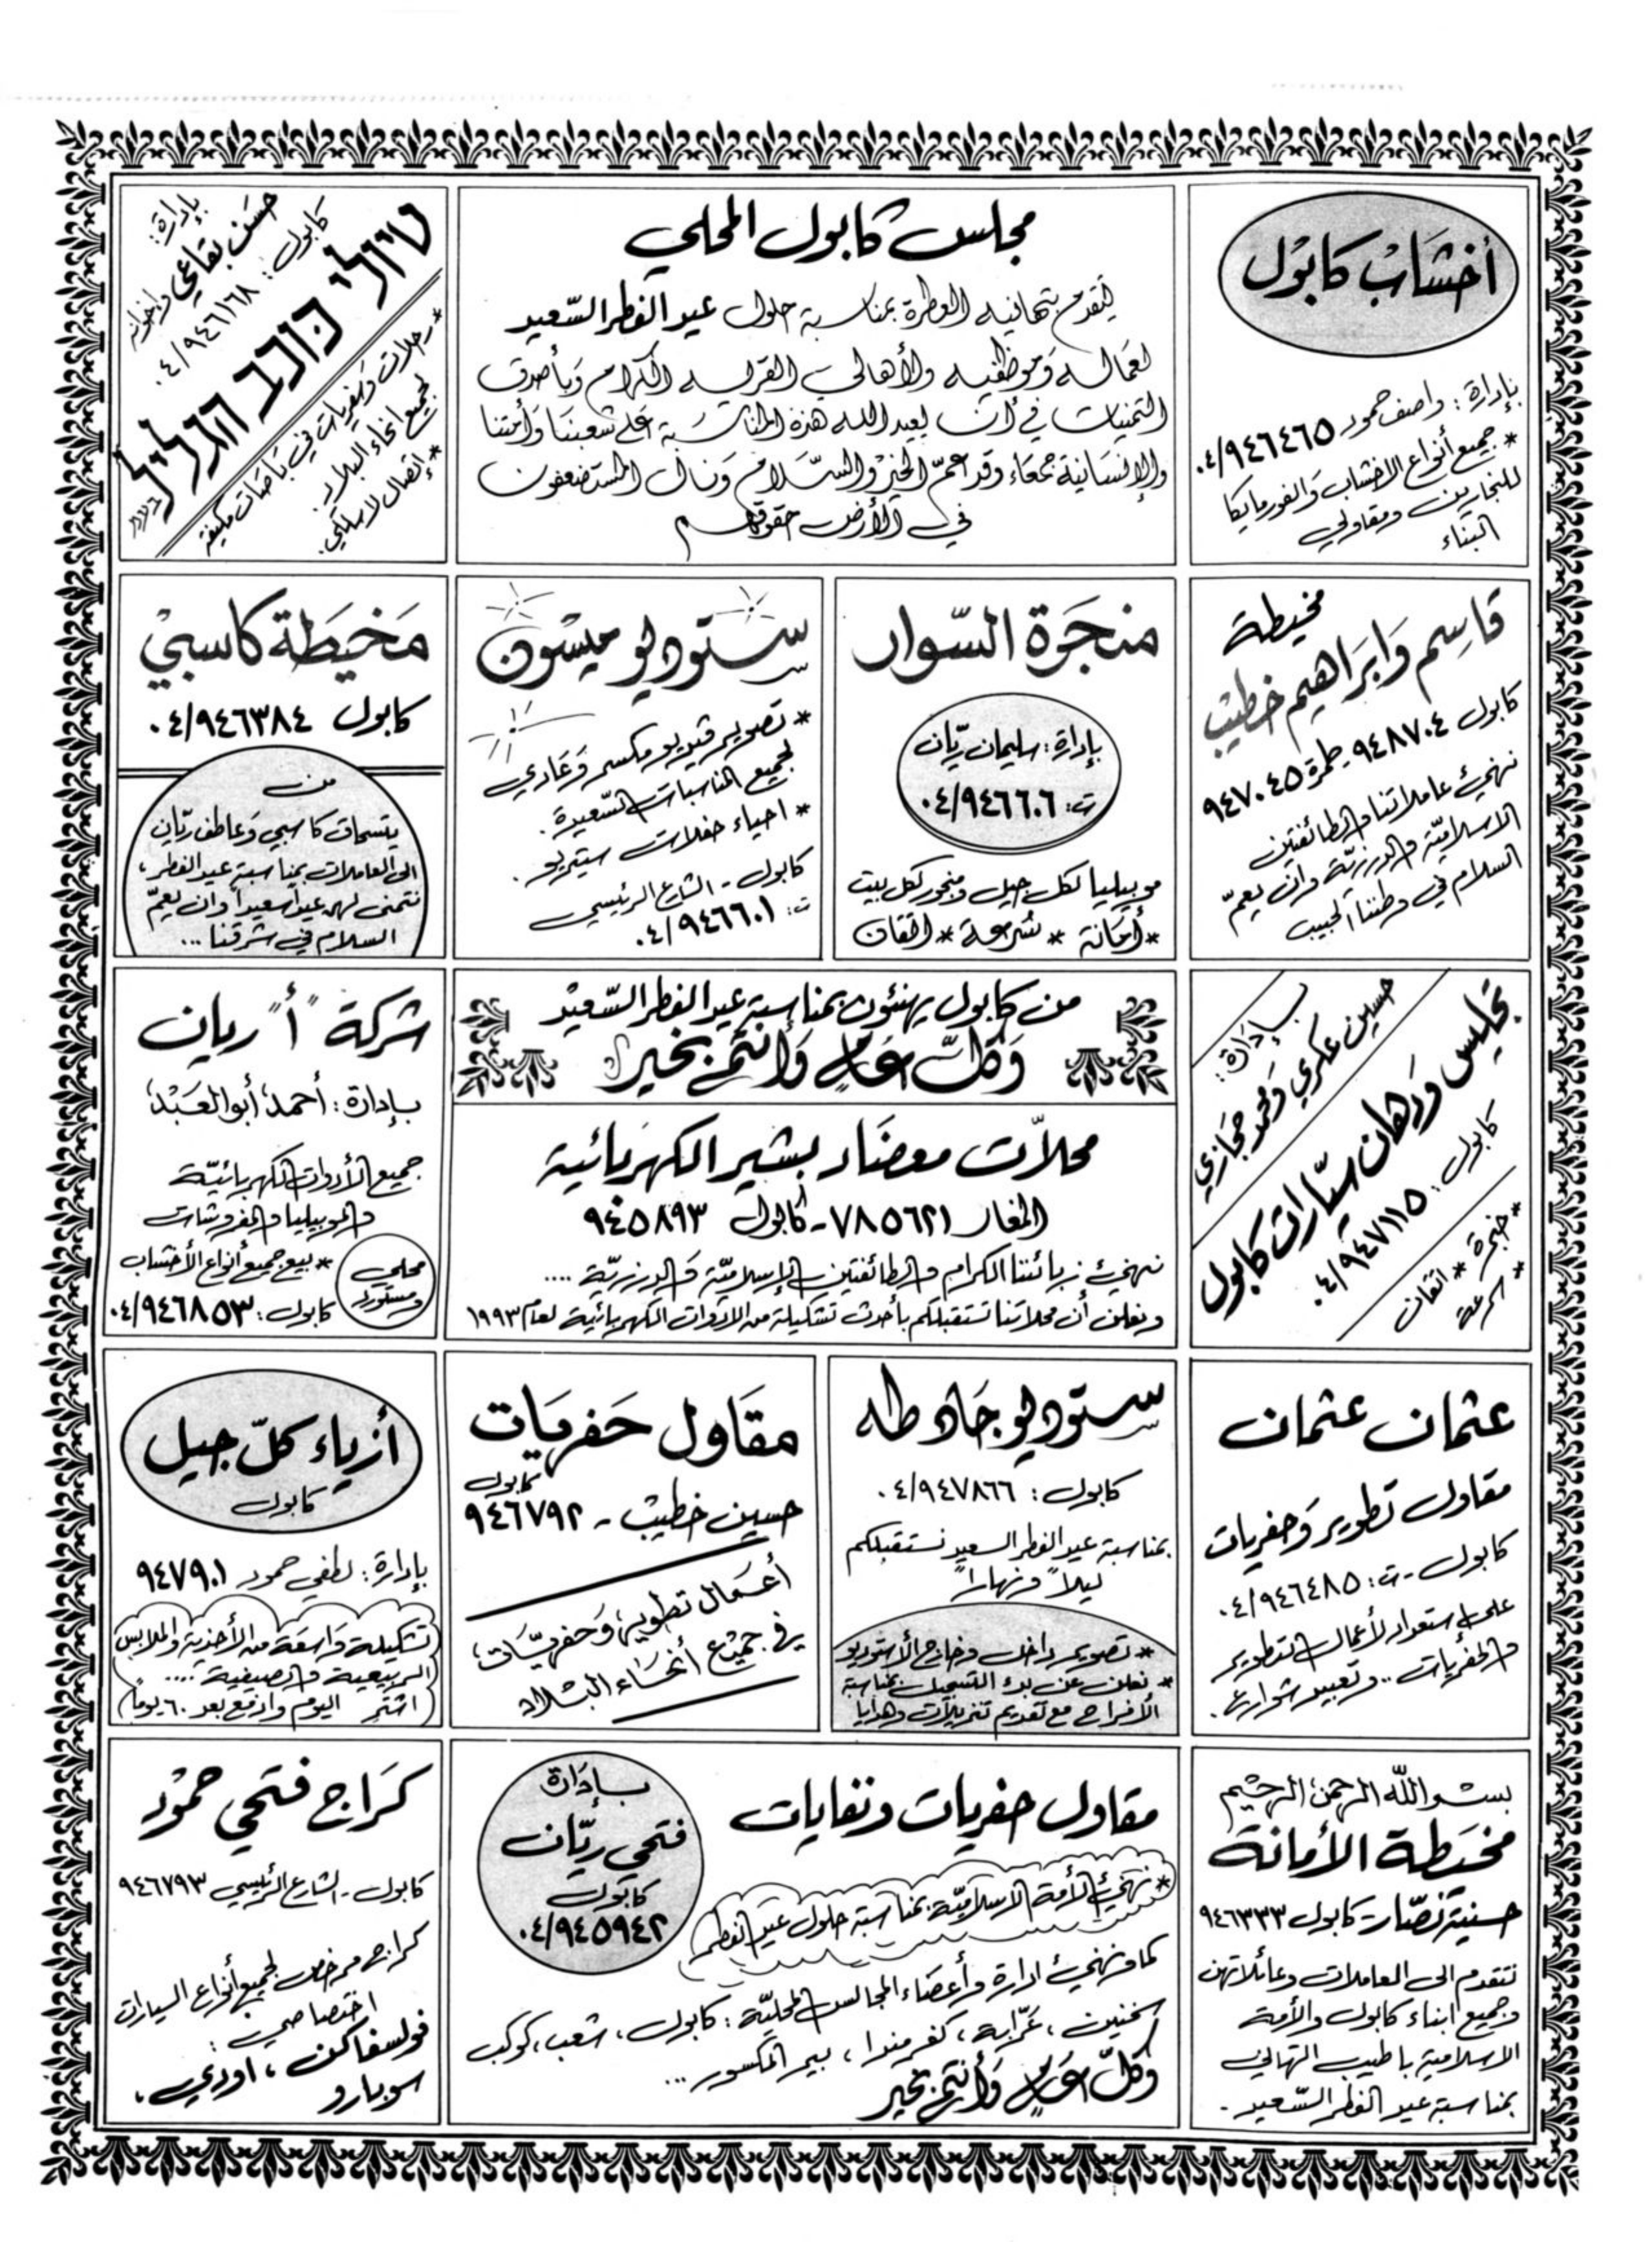 أخشاب كابول
بإدارة: واصف حمود ٠٤/٩٤٦٤٦٥
* جميع أنواع الاخشاب والفورمايكا
للنجارين ومقاولي
البناء
مجلس كابول المحلي
يتقدم بتهانيه العطرة بمناسبة حلول عيد الفطر السّعيد
لعماله وموظفيه ولأهالي القرية الكرام وبأصدق
التمنيات في أن يعيد الله هذه المناسبة على شعبنا وأمتنا
والإنسانية جمعاء وقد عمّ الخير والسّلام ونال المستضعفون
في الأرض حقوقهم
טיולי כוכב הגליל בע"מ
بإدارة:
حسن بقاعي واخوانه
كابول: ٠٤/٩٤٦١٦٨
* رحلات وسفريات في باصات مكيفة
لجميع انحاء البلاد.
* إتصال لاسلكي.
مخيطة
قاسم وابراهيم خطيب
كابول ٩٤٨٧٠٤ - طمرة ٩٤٧٠٤٥
نهنئ عاملاتنا والطائفتين
الاسلاميّة والدرزيّة وان يعمّ
السلام في وطننا الحبيب
منجرة السّوار
بإدارة: سليمان ريّان
ت: ٠٤/٩٤٦٦٠٦
موبيليا لكل جيل ومنجور لكل بيت
* أمانة * سُرعة * اتقان
ستوديو ميسون
* تصوير ڤيديو ميكسر وعادي
لجميع المناسبات السّعيدة.
* احياء حفلات ستيريو.
كابول - الشارع الرئيسي
ت: ٠٤/٩٤٦٦٠١
مَخيَطة كاسبي
كابول ٠٤/٩٤٦٣٨٤
من
يتسحاق كاسبي وعاطف ريّان
الى العاملات بمناسبة عيد الفطر،
نتمنى لهن عيداً سعيداً وان يعمّ
السلام في شرقنا...
تجليس ودهان سيّارات كابول
بإدارة:
حسين عكري ومحمد حجازي
كابول: ٠٤/٩٤٧١١٥
* خبرة * اتقان
* سرعة
من كابول يهنئون بمناسبة عيد الفطر السّعيد
وَكلّ عَام وَأنتم بخير
محلّات معضاد بشير الكهربائية
المغار ٧٨٥٦٢١ - كابول ٩٤٥٨٩٣
نهنئ زبائننا الكرام والطائفتين الإسلاميّة والدرزيّة ....
ونعلن أن محلاتنا تستقبلكم بأحدث تشكيلة من الادوات الكهربائية لعام ١٩٩٣
شركة "أ" ريان
بإدارة: أحمد أبو العَبْد
جميع الأدوات الكهربائيّة
والموبيليا والمفروشات
* بيع جميع أنواع الأخشاب
محلي
ومستورد
كابول: ٠٤/٩٤٦٨٥٣
عثمان عثمان
مقاول تطوير وحفريات
كابول - ت: ٠٤/٩٤٦٤٨٥
على استعداد لأعمال التطوير
والحفريات.. وتعبيد شوارع.
ستوديو جاد طه
كابول: ٠٤/٩٤٧٨٦٦
بمناسبة عيد الفطر السعيد نستقبلكم
ليلاً ونهاراً
* تصوير داخل وخارج الأستوديو
* نعلن عن بدء التسجيل بمناسبة
الأفراح مع تقديم تنزيلات وهدايا
مقاول حفريات
كابول
حسين خطيب - ٩٤٦٧٩٢
أعمال تطوير وحفريّات
في جميع أنحاء البلاد
أزياء كلّ جيل
كابول
بإدارة: لطفي حمود ٩٤٧٩٠١
تشكيلة واسعة من الأحذية والملابس
الربيعية والصيفية ....
اشترِ اليوم وادفع بعد ٦٠ يوماً
بسم الله الرحمن الرحيم
مخيَطة الأمانة
حسنية نصّار - كابول ٩٤٦٣٣٣
نتقدم الى العاملات وعائلاتهن
وجميع ابناء كابول والأمة
الاسلامية باطيب التهاني
بمناسبة عيد الفطر السّعيد.
مقاول حفريات ونفايات
بإدارة
فتحي ريّان
كابول
٠٤/٩٤٥٩٤٢
* نهنئ الأمة الاسلاميّة بمناسبة حلول عيد الفطر
كما ونهنئ ادارة وأعضاء المجالس المحليّة: كابول، شعب، كوكب
سخنين، عرّابة، كفرمندا، بير المكسور...
وكلّ عام وأنتم بخير
كراج فتحي حمّود
كابول - الشارع الرئيسي ٩٤٦٧٩٣
كراج مرخص لجميع أنواع السيارات
اختصاصي:
فولسفاكن، اودي،
سوبارو